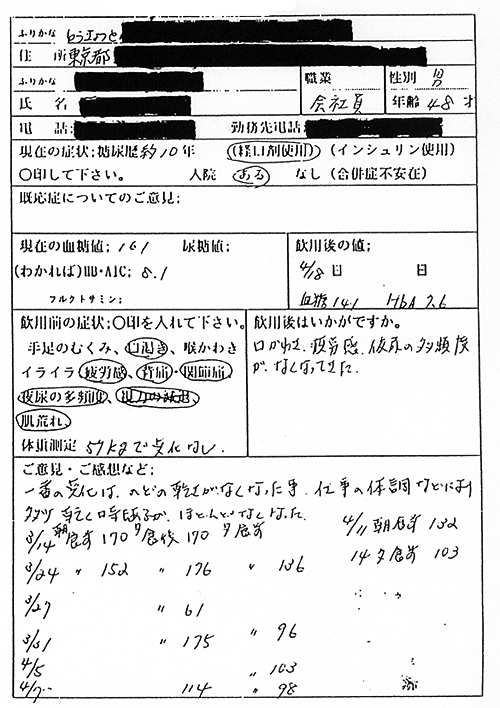 ふりかな
住 所 東京都
ふりかな 職業 性別 男
氏 名 会社員 年齢 48 才
電 話: 勤務先電話:
現在の症状:糖尿歴 約10年 (経口剤使用) (インシュリン使用)
〇印して下さい。 入院 ある なし (合併症不安在)
既応症についてのご意見:
現在の血糖値; 161 尿糖値; 飲用後の値;
4/18日 日
(わかれば)HB・AIC; 8.1
フルクトサミン; 血糖 141 HbA 7.6
飲用前の症状;〇印を入れて下さい。 飲用後はいかがですか。
手足のむくみ、口渇き、喉かわき 口かわき、疲労感、夜尿の多頻度
イライラ 疲労感、背痛・関節痛、 がなくなってきた。
夜尿の多頻度、視力の減退、
肌荒れ、
体重測定 57kgで変化なし.
ご意見・ご感想など;
一番の変化は、のどの乾きがなくなった事、仕事の体調などにより
多少乾く時はあるが、ほとんどなくなった。
3/14 朝食前 170 夕食後 170 夕食前 4/11 朝食前 132
3/24 〃 152 〃 176 〃 136 14 夕食前 103
3/27 〃 61
3/31 〃 175 〃 96
4/5 〃 103
4/7 114 〃 98